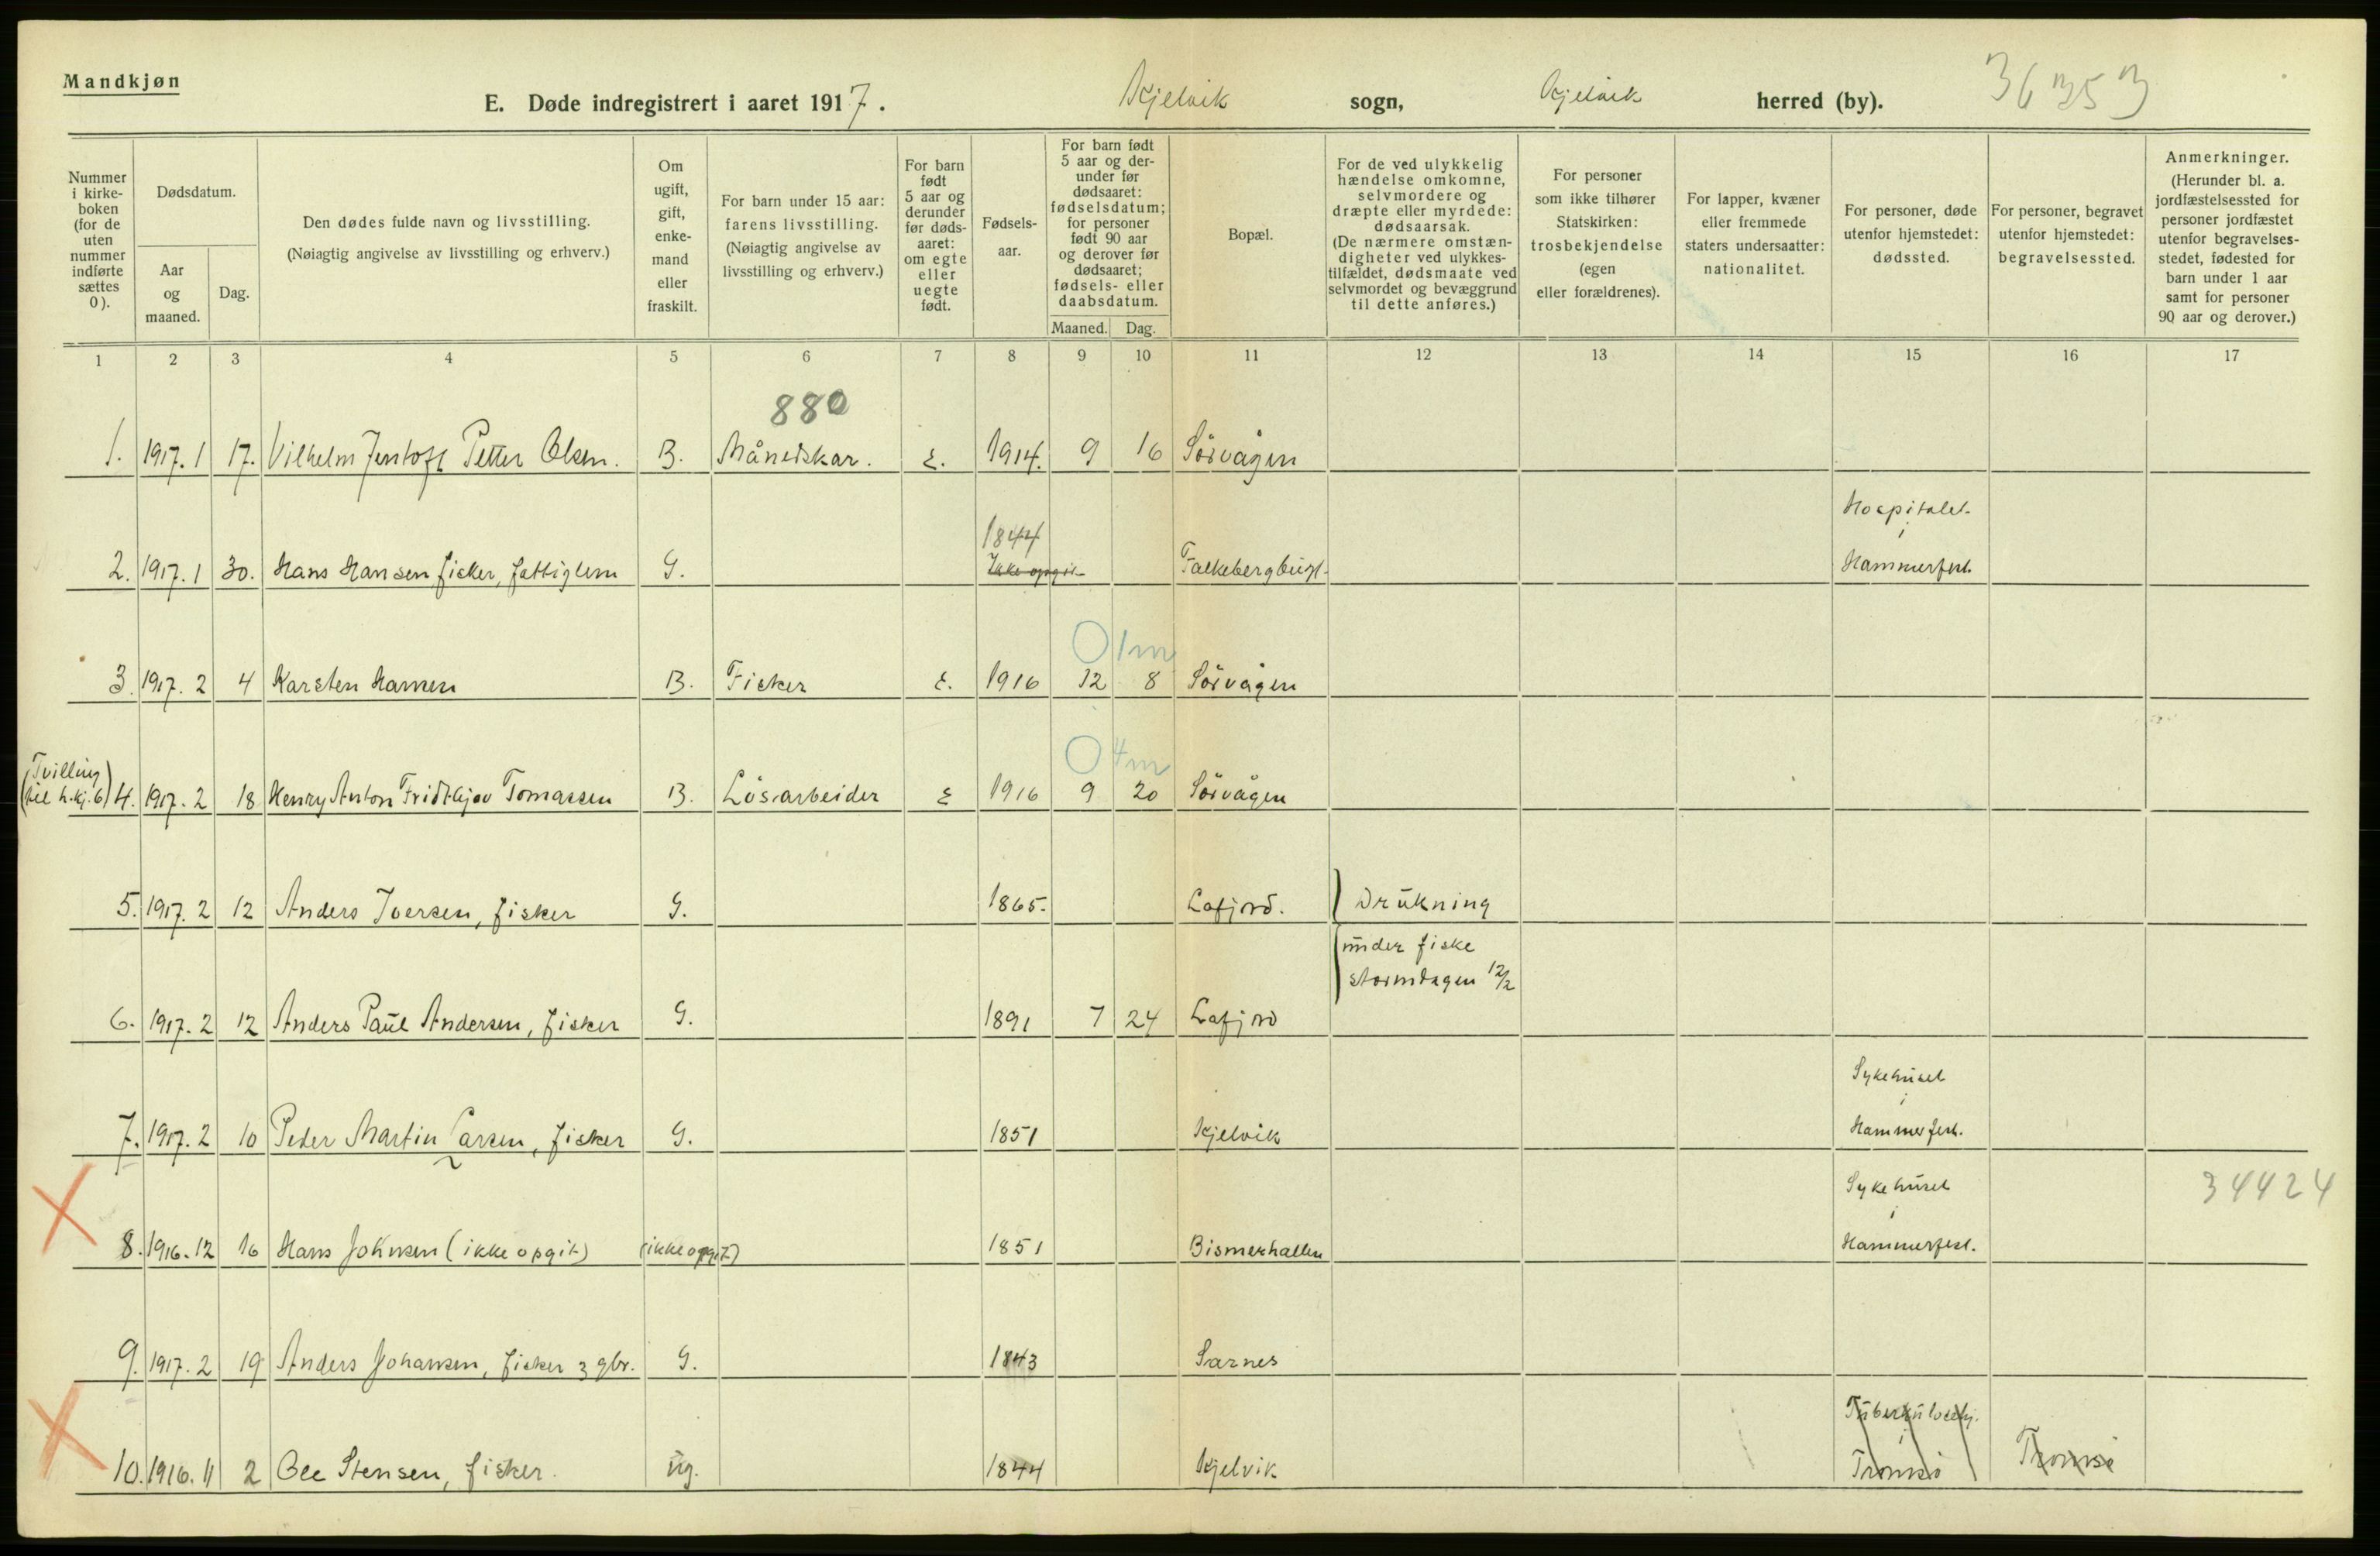 Mandkjøn
E. Døde indregistrert i aaret 1917. Kjelvik sogn, Kjelvik herred (by). 36353
Nummer i kirkeboken (for de uten nummer indførte sættes 0).
Dødsdatum.
Aar og maaned.
Dag.
Den dødes fulde navn og livsstilling.
(Nøiagtig angivelse av livsstilling og erhverv.)
Om ugift, gift, enkemand eller fraskilt.
For barn under 15 aar: farens livsstilling.
(Nøiagtig angivelse av livsstilling og erhverv.)
For barn født 5 aar og derunder før dødsaaret: om egte eller uegte født.
Fødselsaar.
For barn født 5 aar og derunder før dødsaaret: fødselsdatum; for personer født 90 aar og derover før dødsaaret; fødsels- eller daabsdatum.
Maaned. Dag.
Bopæl.
For de ved ulykkelig hændelse omkomne, selvmordere og dræpte eller myrdede: dødsaarsak.
(De nærmere omstændigheter ved ulykkestilfældet, dødsmaate ved selvmordet og bevæggrund til dette anføres.)
For personer som ikke tilhører Statskirken: trosbekjendelse (egen eller forældrenes).
For lapper, kvæner eller fremmede staters undersaatter: nationalitet.
For personer, døde utenfor hjemstedet: dødssted.
For personer, begravet utenfor hjemstedet: begravelsessted.
Anmerkninger.
(Herunder bl. a. jordfæstelsessted for personer jordfæstet utenfor begravelsesstedet, fødested for barn under 1 aar samt for personer 90 aar og derover.)
1 2 3 4 5 6 7 8 9 10 11 12 13 14 15 16 17
880
1. 1917. 1 17. Vilhelm Jentoft Petter Olsen. B. Månedskar. E. 1914. 9 16 Sörvågen
1844 Hospitalet i
2. 1917. 1 30. Hans Hansen, fisker, fattiglem G. Ikke opgit Falkebergbugt. Hammerfest.
0 1m
3. 1917. 2 4 Karsten Hansen B. Fisker E. 1916 12 8 Sörvågen
0 4m
(Tvilling til h.kj. 6) 4. 1917. 2 18 Henry Anton Fridthjov Tomassen B. Lösarbeider E 1916 9 20 Sörvågen
5. 1917. 2 12 Anders Iversen, fisker G. 1865. Lafjord. Drukning
under fiske
stormdagen 12/2
6. 1917. 2 12 Anders Paul Andersen, fisker G. 1891 7 24 Lafjord
Sykehuset i
7. 1917. 2 10 Peder Martin Larsen, fisker G. 1851 Kjelvik Hammerfest.
Sykehuset i 34424
8. 1916. 12 16 Hans Johnsen (ikke opgit) (ikke opgit) 1851 Bismerhallen Hammerfest.
9. 1917. 2 19 Anders Johansen, fisker 3 gbr. G. 1843 Sarnes
Tuberkulosehj. i
10. 1916. 11 2 Ole Stensen, fisker. ug. 1844 Kjelvik Tromsö Tromsö